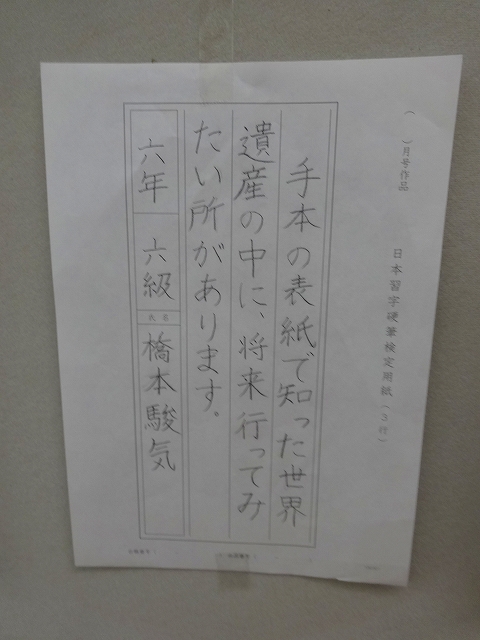 ( )月号作品
日本習字硬筆検定用紙(3行)
手本の表紙で知った世界
遺産の中に、将来行ってみ
たい所があります。
六年 六級 氏名 橋本駿気